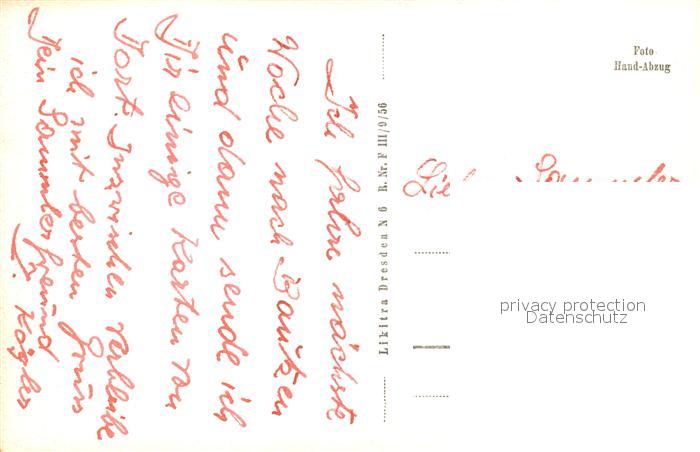 Foto
Hand-Abzug
Ich fahre nächste
Woche nach Bautzen
und dann sende ich
Dir einige Karten von
Dort. Inzwischen verbleibe
ich mit besten Gruss
Dein Sammlerfreund
Likitra Dresden N 6 R. Nr. F III/9/56
privacy protection
Datenschutz